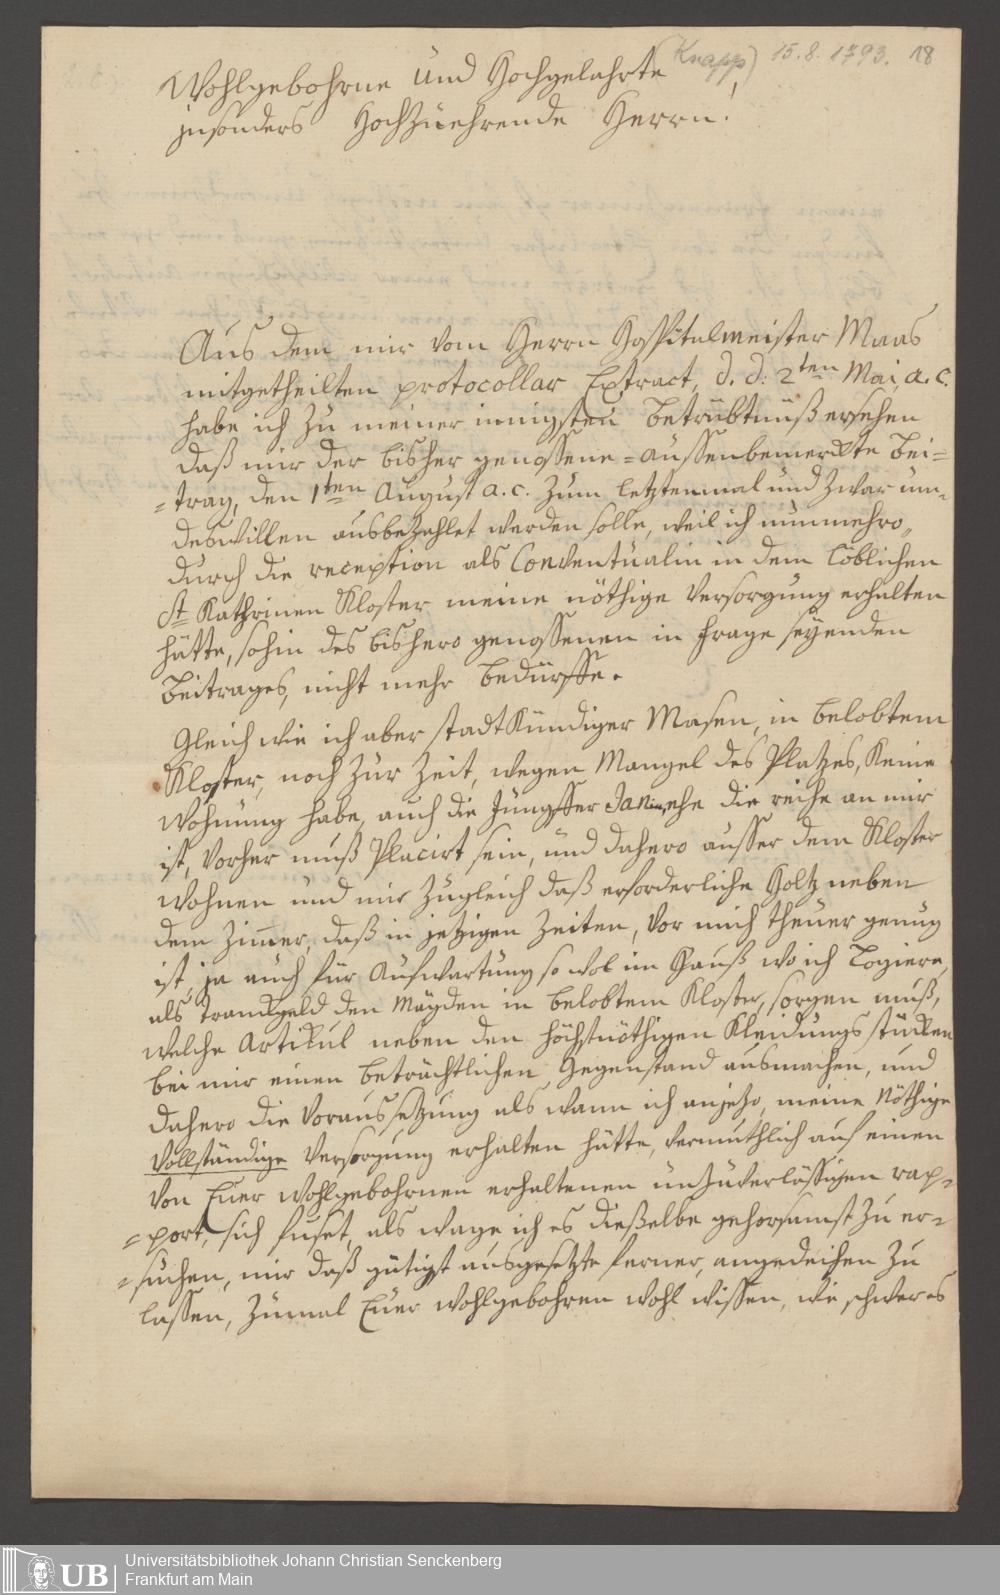 (Knapp) 15.8.1793. 18
Wohlgebohrne und Hochgelahrte,
jnsonders Hochzuehrende Herrn!
Aus dem mir vom Herrn Hospitalmeister Maas
mitgetheilten protocollar Extract, d. d: 2ten Mai, a. c.
habe ich zu meiner innigsten Betrübtnüß ersehen
daß mir der bisher genossene = aussenbemerckte Bei=
=trag, den 1ten August a. c. zum letztenmal und zwar um-
deswillen ausbezahlet werden solle, weil ich nunmehro,
durch die reception als Conventualin in dem löblichen
St Kathrinen Kloster meine nöthige Versorgung erhalten
hätte, sohin des bishero genossenen in Frage seyenden
Beitrages, nicht mehr bedürffe.
Gleich wie ich aber stadtkündiger Masen, in belobtem
Kloster, noch zur Zeit, wegen Mangel des Platzes, keine
Wohnung habe, auch die Jungffer ehe die reihe an mir
ist, vorher muß Placirt sein, und dahero ausser dem Kloster
wohnen und mir zugleich daß erforderliche Holtz neben
dem Zimmer, daß in jetzigen Zeiten, vor mich theuer genug
ist, ja auch für Aufwartung so wol im Hauß wo ich Logiere,
als Tranckgeld den Mägden in belobtem Kloster, sorgen muß,
welche Artikul neben den höchstnöthigen Kleidungs stücken
bei mir einen beträchtlichen Gegenstand ausmachen, und
dahero die Voraussetzung als wann ich anjezo, meine Nöthige
Vollständige Versorgung erhalten hätte, vermuthlich auf einen
von Euer Wohlgebohrnen erhaltenen unzuverlässigen rap=
=port, sich fuset, als wage ich es dieselbe gehorsamst zu er=
=suchen, mir daß gütigst ausgesetzte ferner, angedeihen zu
lassen, zumal Euer Wohlgebohren wohl wissen, wie schwer es
UB
Universitätsbibliothek Johann Christian Senckenberg
Frankfurt am Main